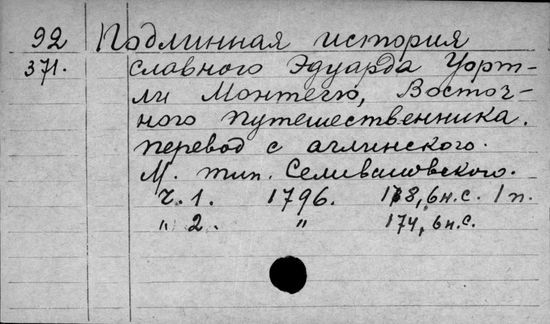 92 Подлинная история
371. славного Эдуарда Уорт-
ли Монтегю, Восточ-
ного путешественника.
перевод с аглинского.
М. тип. Селивановского.
Ч. 1. 1796. 6н.с. 1п.
" 2. " 174, 6н.с.